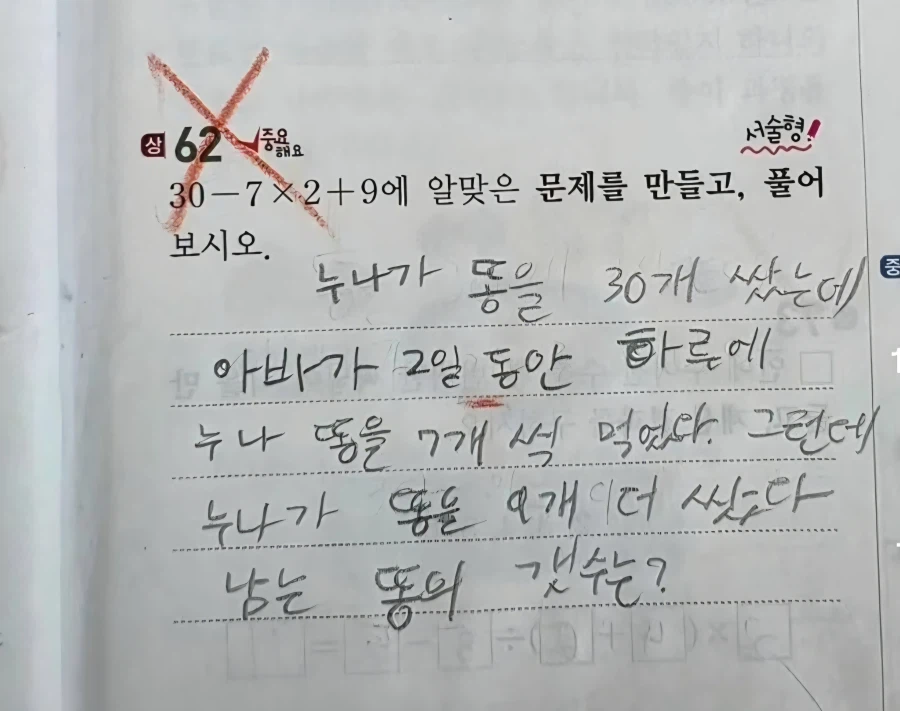 상 62 중요해요 서술형!
30-7×2+9에 알맞은 문제를 만들고, 풀어
보시오.
누나가 똥을 30개 쌌는데
아바가 2일 동안 하루에
누나 똥을 7개 씩 먹었다. 그런데
누나가 똥을 9개 더 쌌다
남는 똥의 갯수는?
중